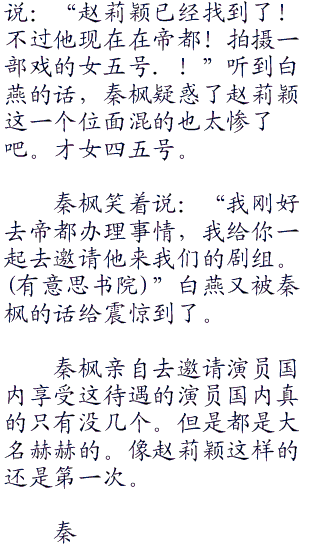 说：“赵莉颖已经找到了！
不过他现在在帝都！拍摄一
部戏的女五号．！”听到白
燕的话，秦枫疑惑了赵莉颖
这一个位面混的也太惨了
吧。才女四五号。
秦枫笑着说：“我刚好
去帝都办理事情，我给你一
起去邀请他来我们的剧组。
(有意思书院)”白燕又被秦
枫的话给震惊到了。
秦枫亲自去邀请演员国
内享受这待遇的演员国内真
的只有没几个。但是都是大
名赫赫的。像赵莉颖这样的
还是第一次。
秦